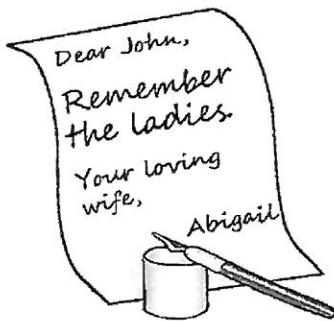 Dear John,
Remember
the ladies.
Your loving
wife,
Abigail